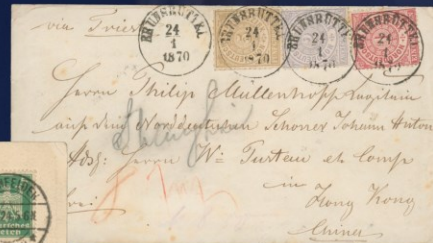 via Triest
BRUNSBÜTTEL 24 1 1870
BRUNSBÜTTEL 24 1 1870
BRUNSBÜTTEL 24 1 1870
BRUNSBÜTTEL 24 1
Herrn Philip Mullenhoff Capitain
auf dem Norddeutschen Schoner Johann Anton
Adr: Herrn Wm Pustau et Comp
in
frei
Hong Kong
China